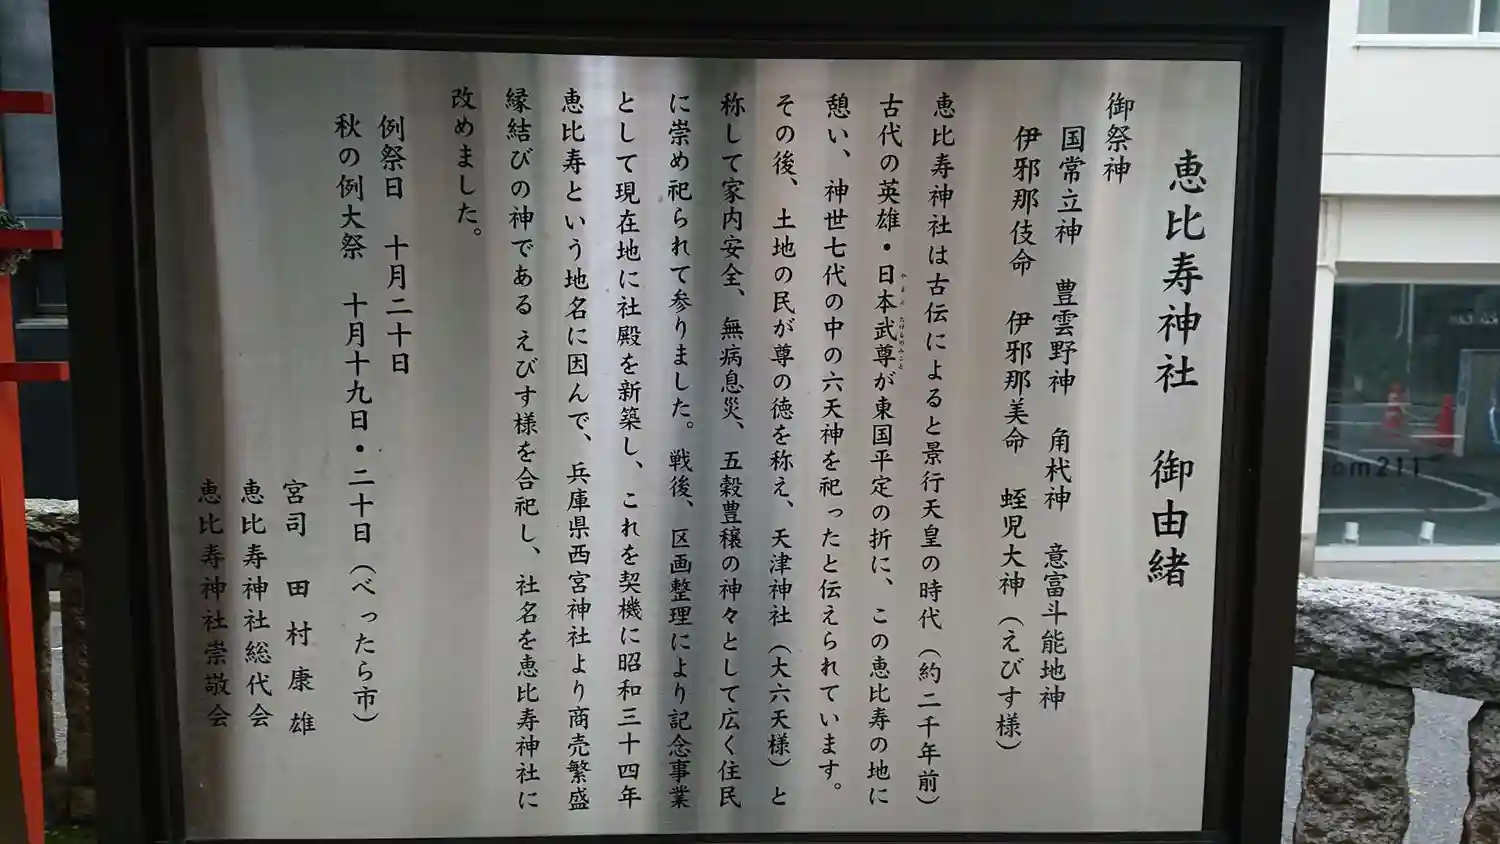 恵比寿神社 御由緒
御祭神
国常立神 豊雲野神 角杙神 意富斗能地神
伊邪那伎命 伊邪那美命 蛭児大神(えびす様)
恵比寿神社は古伝によると景行天皇の時代(約二千年前)
古代の英雄・日本武尊が東国平定の折に、この恵比寿の地に
やまと たけるのみこと
憩い、神世七代の中の六天神を祀ったと伝えられています。
その後、土地の民が尊の徳を称え、天津神社(大六天様)と
称して家内安全、無病息災、五穀豊穣の神々として広く住民
に崇め祀られて参りました。戦後、区画整理により記念事業
として現在地に社殿を新築し、これを契機に昭和三十四年
恵比寿という地名に因んで、兵庫県西宮神社より商売繁盛
縁結びの神であるえびす様を合祀し、社名を恵比寿神社に
改めました。
例祭日 十月二十日
秋の例大祭 十月十九日・二十日(べったら市)
宮司 田村康雄
恵比寿神社総代会
恵比寿神社崇敬会
om211